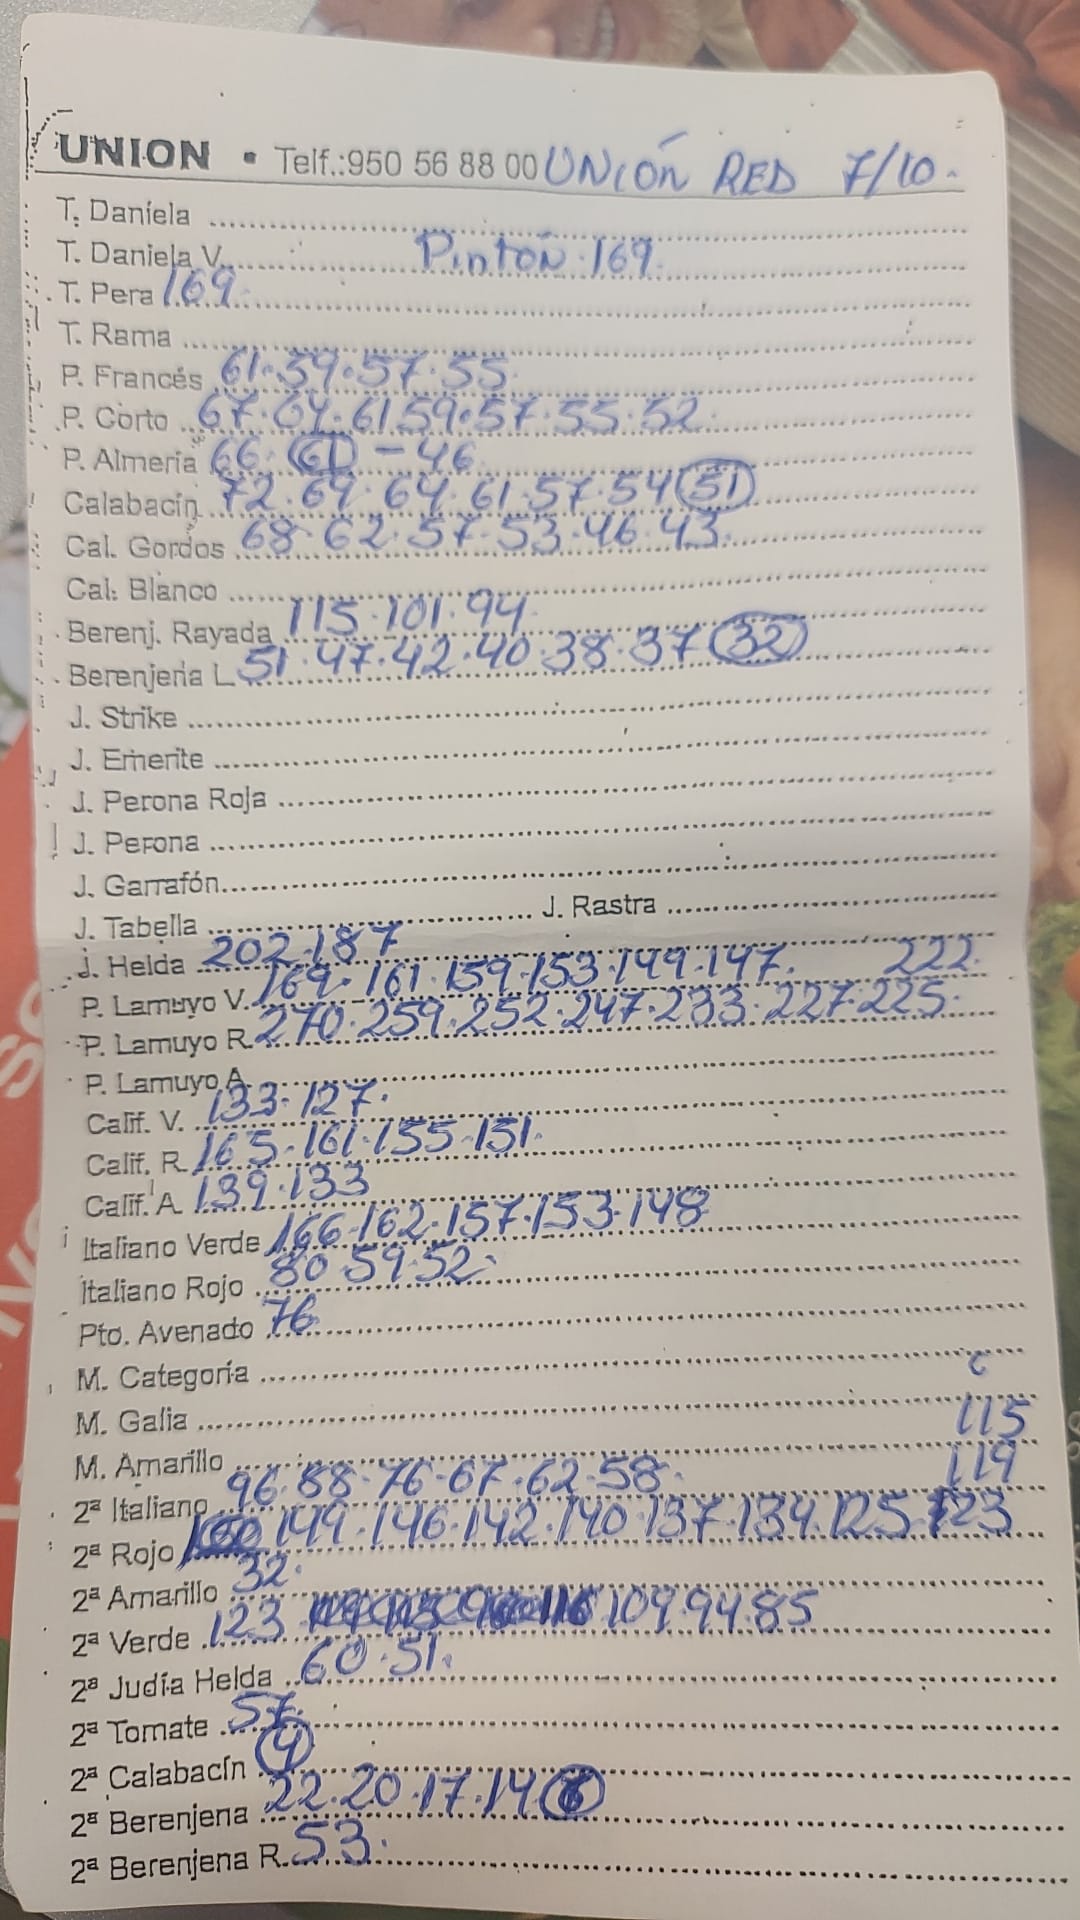 UNION • Telf.:950 56 88 00 UNIÓN RED 7/10.
T. Daniela
T. Daniela V. Pintón 169.
T. Pera 169.
T. Rama
P. Francés 61.59.57.55
P. Corto 67.64.61.59.57.55.52.
P. Almería 66. 61 - 46.
Calabacín 72.69.64.61.57.54 51
Cal. Gordos 68.62.57.53.46.43.
Cal. Blanco
Berenj. Rayada 115.101.94.
Berenjena L. 51.47.42.40.38.37 32
J. Strike
J. Emerite
J. Perona Roja
J. Perona
J. Garrafón
J. Tabella J. Rastra
J. Helda 202.187
P. Lamuyo V. 169.161.159.153.149.147. 222.
P. Lamuyo R. 270.259.252.247.233.227.225.
P. Lamuyo A.
Calif. V. 133.127.
Calif. R. 165.161.155.151.
Calif. A. 139.133
Italiano Verde 166.162.157.153.148
Italiano Rojo 80.59.52.
Pto. Avenado 76
M. Categoría
M. Galia 115
M. Amarillo 119
2ª Italiano 96.88.76.67.62.58.
2ª Rojo 149.146.142.140.137.134.125.123
2ª Amarillo 32.
2ª Verde 123 109.94.85
2ª Judía Helda 60.51.
2ª Tomate 57.
2ª Calabacín 4
2ª Berenjena 22.20.17.14
2ª Berenjena R. 53.